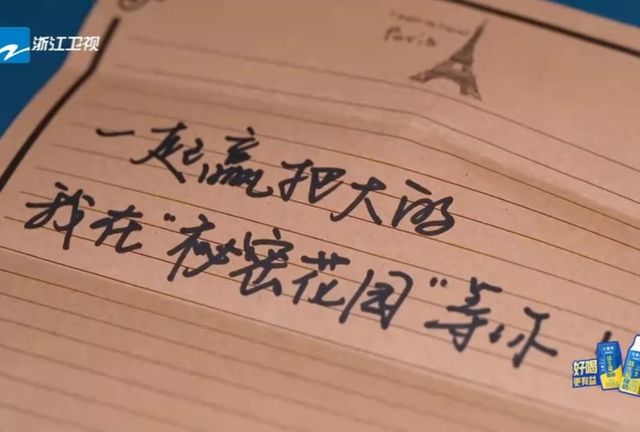 浙江卫视
Paris
一起赢把大的
我在"秘密花园"等你
好喝
更有益